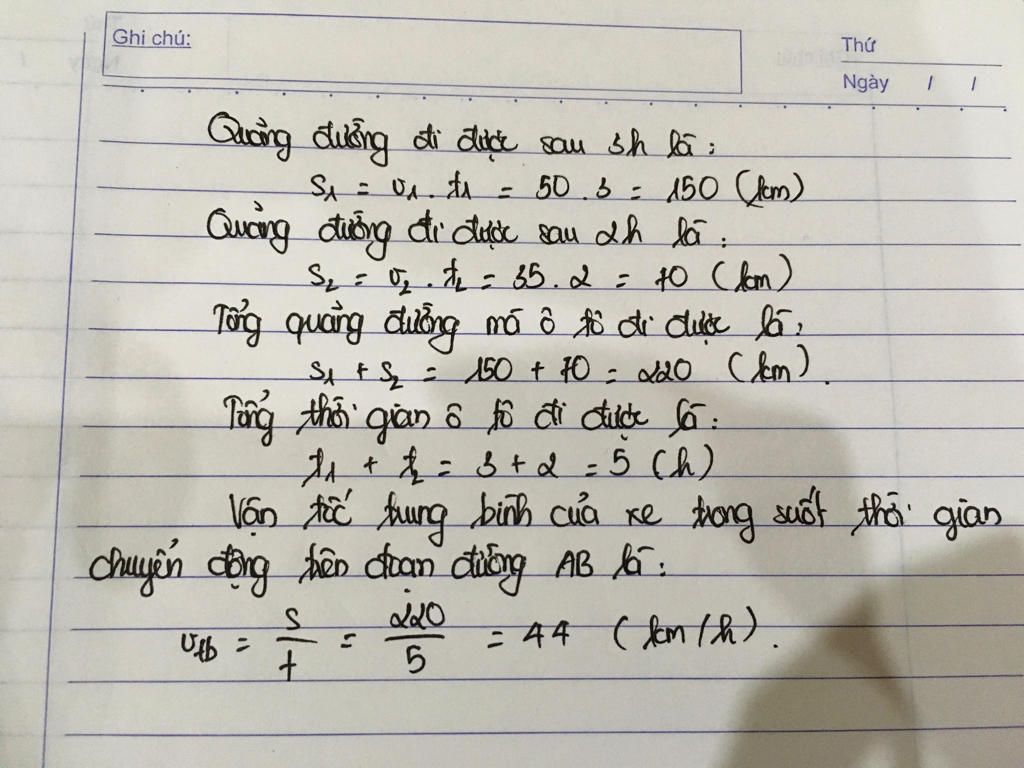 Ghi chú:
Thứ
Ngày / /
Quảng đường đi được sau 3h là:
S1 = v1 . t1 = 50 . 3 = 150 (km)
Quảng đường đi được sau 2h là:
S2 = v2 . t2 = 35 . 2 = 70 (km)
Tổng quảng đường mà ô tô đi được là:
S1 + S2 = 150 + 70 = 220 (km).
Tổng thời gian ô tô đi được là:
t1 + t2 = 3 + 2 = 5 (h)
Vận tốc trung bình của xe trong suốt thời gian
chuyển động trên đoạn đường AB là:
vtb = S/t = 220/5 = 44 (km/h).